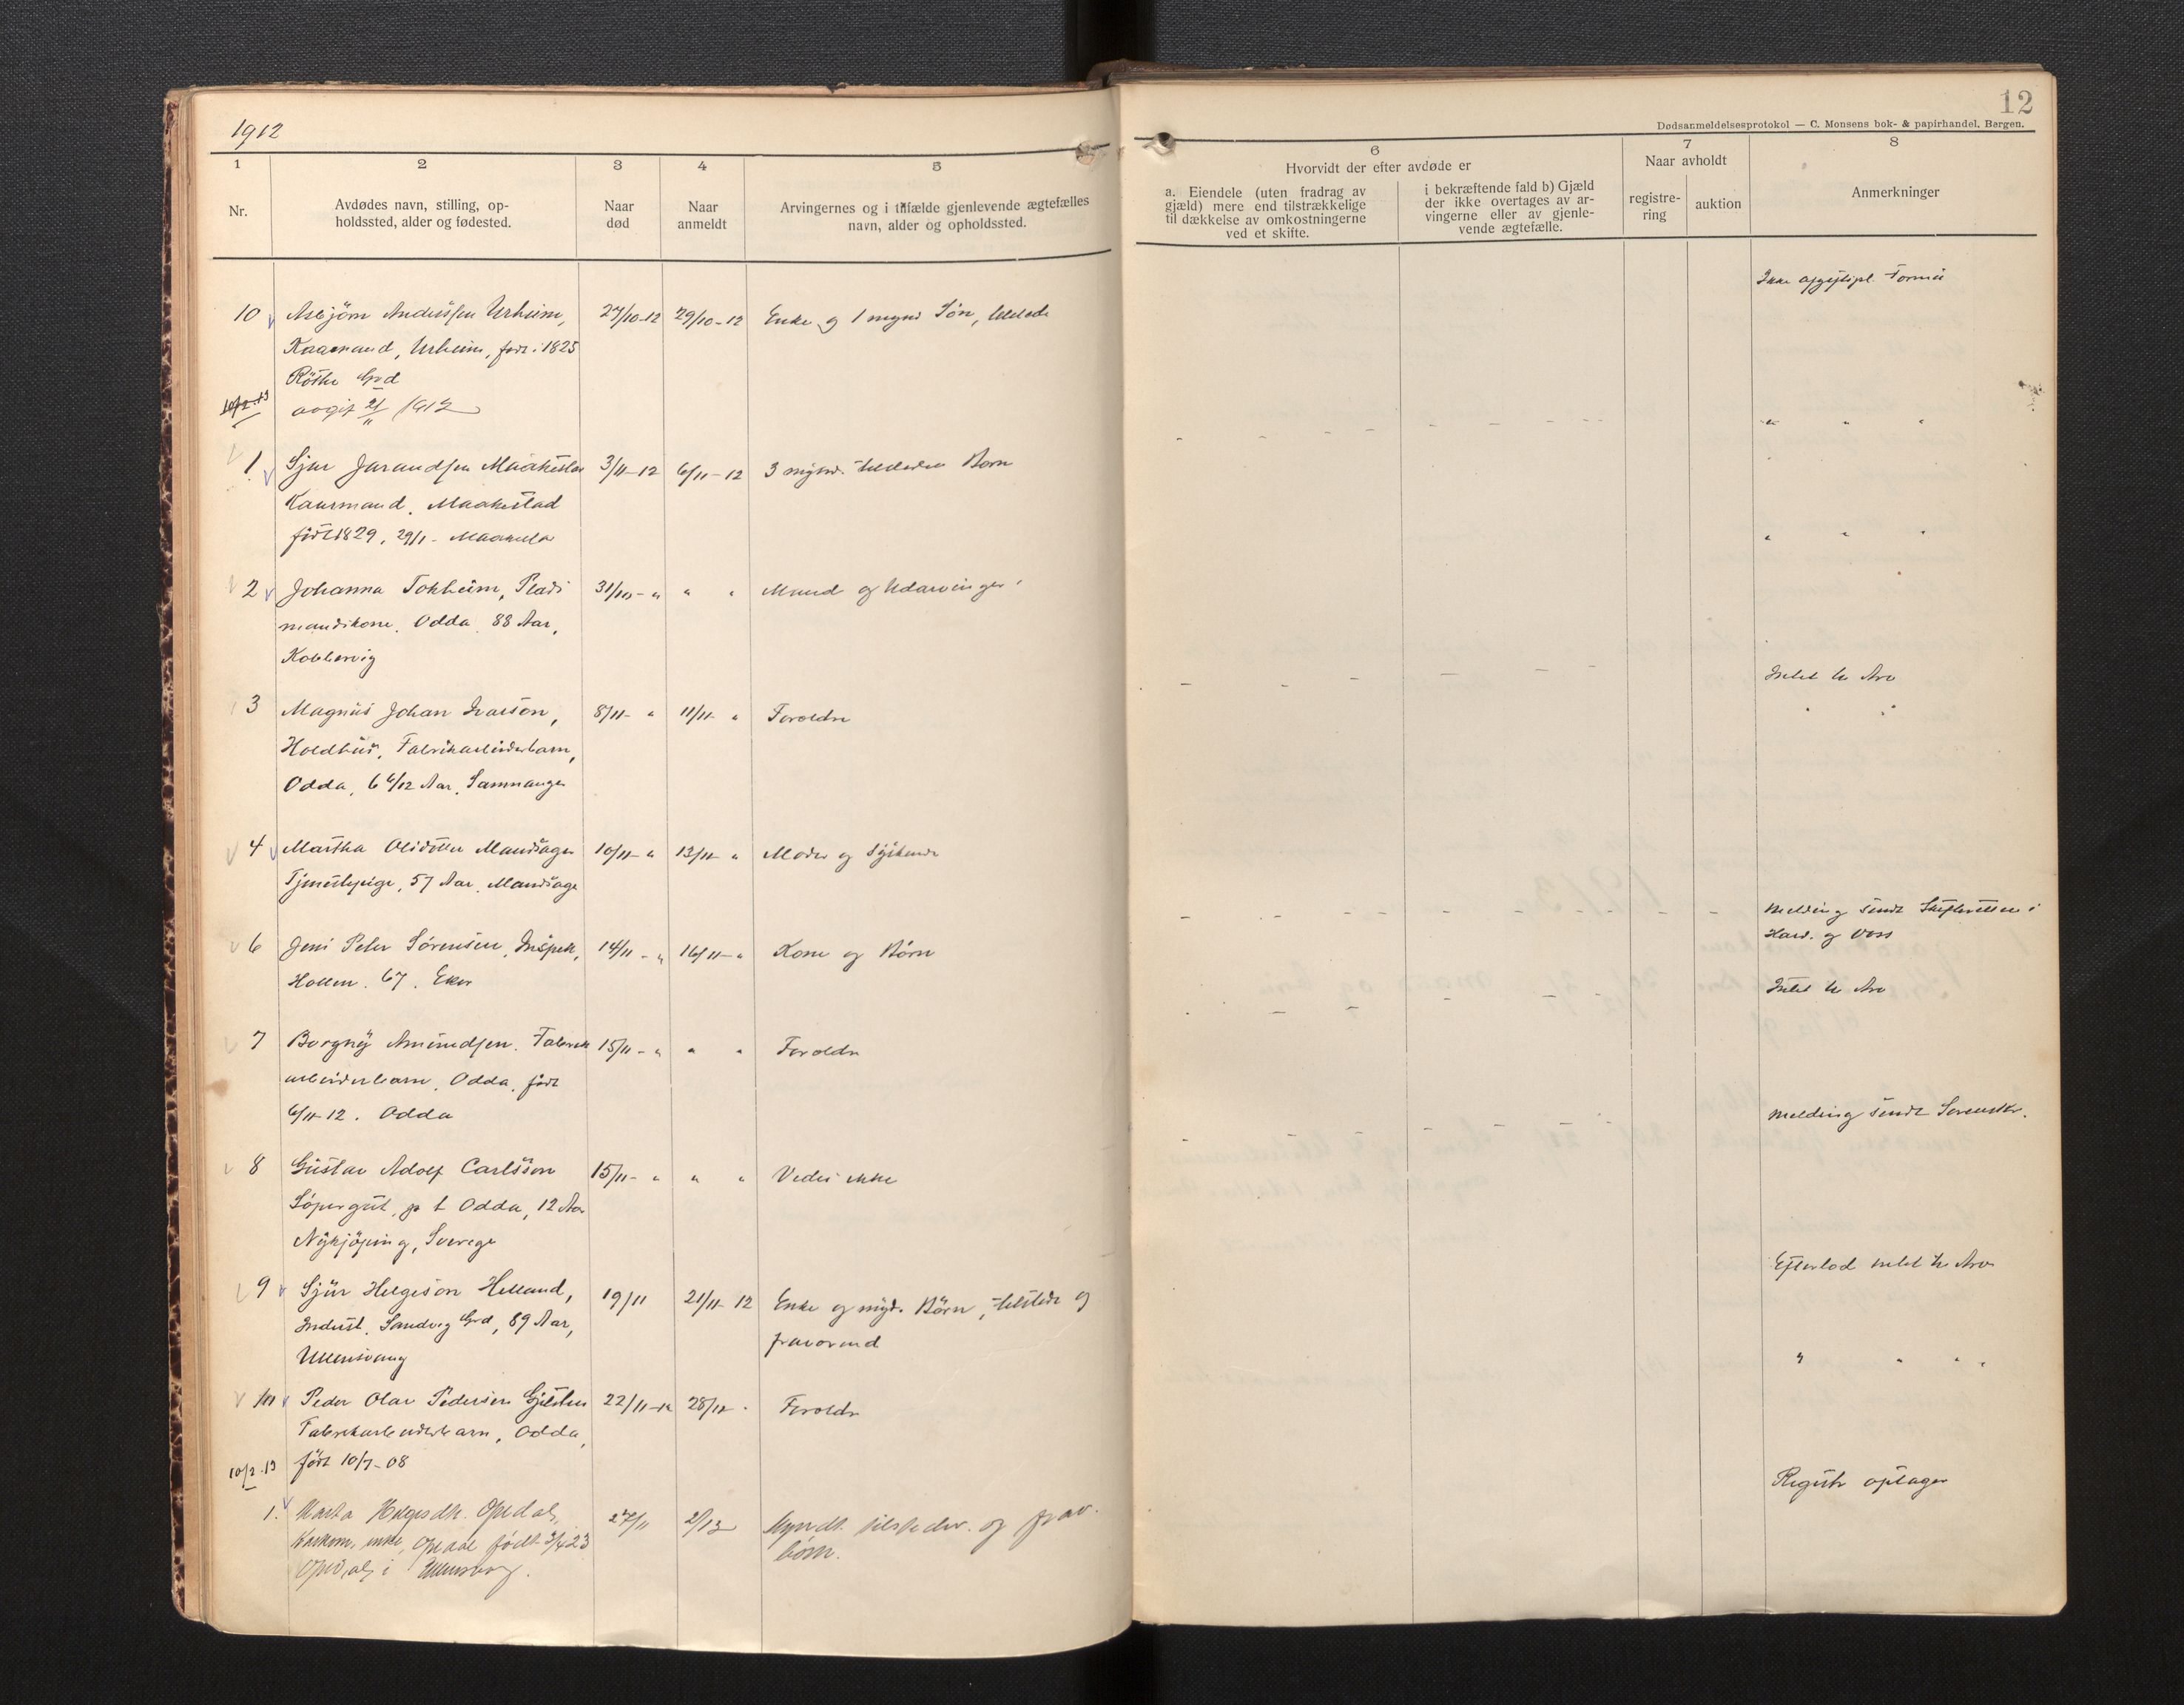 1912
12
Dødsanmeldelsesprotokol — C. Monsens bok- & papirhandel, Bergen.
1
2
3
4
5
6
7
8
Nr.
Avdødes navn, stilling, op-
holdssted, alder og fødested.
Naar
død
Naar
anmeldt
Arvingernes og i tilfælde gjenlevende ægtefælles
navn, alder og opholdssted.
Hvorvidt der efter avdøde er
a. Eiendele (uten fradrag av
gjæld) mere end tilstrækkelige
til dækkelse av omkostningerne
ved et skifte.
i bekræftende fald b) Gjæld
der ikke overtages av ar-
vingerne eller av gjenle-
vende ægtefælle.
Naar avholdt
registre-
ring
auktion
Anmerkninger
Ikke Formue
10 Asbjørn Urheim, 27/10-12 29/10-12 Enke og 1 Søn,
Urheim, født i 1825
Grd
10/2.13 1912
" " "
1. Sjur Maakestad 3/11-12 6/11-12 3 Børn
Kaarmand. Maakestad
født 1829, 29/1 -
" " "
2 Johanna Tokheim, Plads 31/10- " " " Mand og Udarvinger
mandskone. Odda 88 Aar,
Kobbervig
Intet to Arv
3 Magnus Johan 8/11- " 11/11- " Foreldre
Holdhus, Fabrikarbeiderbarn,
Odda, 6 6/12 Aar, Samnanger
" "
4 Martha Olsdotter Mandsager 10/11- " 13/11- " Moder og Syskende
Tjenestepige, 57 Aar, Mandsager
Melding sendt Skifteretten i
Hard. og Voss
6 Jens Peter Sørensen, Inspek, 14/11- " 16/11- " Kone og Børn
67. Eker
Intet to Arv
7 Borgny Amundsen. Fabrik 15/11- " " " Foreldre
arbeiderbarn, Odda, født
6/11-12. Odda
Melding sendt Sorenskr.
8 Gustav Adolf Carlsson 15/11- " " " Vides ikke
p t Odda, 12 Aar
Nykjöping, Sverige
Efterlod intet to Arv
9 Sjur Helgeson Helland, 19/11 21/11-12 Enke og mynd. Børn, tilstede og
Inderst, Sandvig Grd, 89 Aar, fraværend
Ullensvang
" " " "
10 Peder Olav Pedersen 22/11-12 28/12 " Foreldre
Fabrikarbeiderbarn, Odda,
10/2.13 født 10/7-08
Registr optages
1. Marta Helgesdtr. Opedal, 27/11 2/12 Myndt. tilstedev. og frav.
enke, Opedal født 3/4 23 børn.
Opedal i Ullensvang.